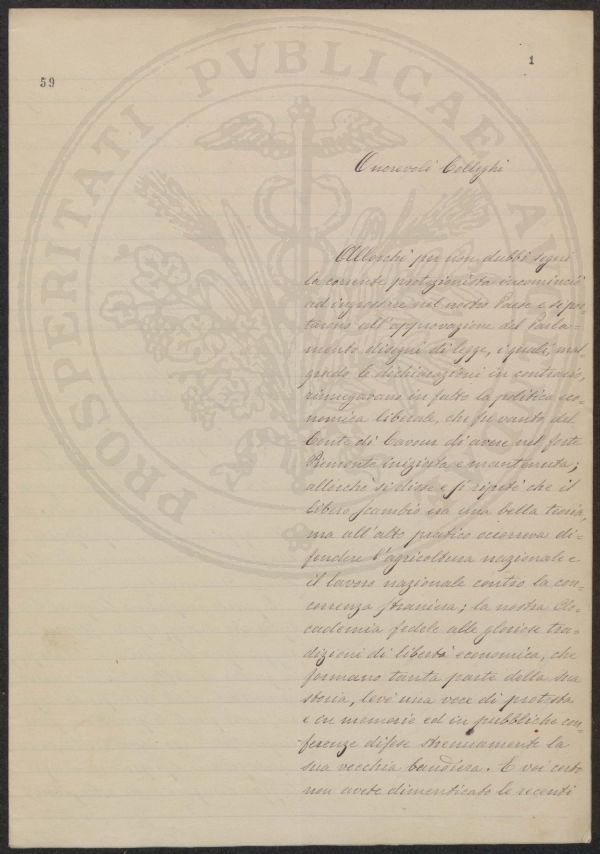 59
1
PROSPERITATI PVBLICAE AV
Onorevoli Colleghi
Allorchè per non dubbi segni
la corrente protezionista incominciò
ad ingrossare nel nostro Paese e si por-
tarono all'approvazione del Parla-
mento disegni di legge, i quali, mal
grado le dichiarazioni in contrario,
rinnegavano in fatto la politica eco-
nomica liberale, che fu vanto del
Conte di Cavour di avere nel forte
Piemonte iniziata e mantenuta;
allorchè si disse e si ripetè che il
libero scambio era una bella teoria,
ma all'atto pratico occorreva di-
fendere l'agricoltura nazionale e
il lavoro nazionale contro la con-
correnza straniera; la nostra Ac-
cademia fedele alle gloriose tra-
dizioni di libertà economica, che
formano tanta parte della sua
storia, levò una voce di protesta
e in memorie ed in pubbliche con-
ferenze difese strenuamente la
sua vecchia bandiera. E voi certo
non avete dimenticato le recenti